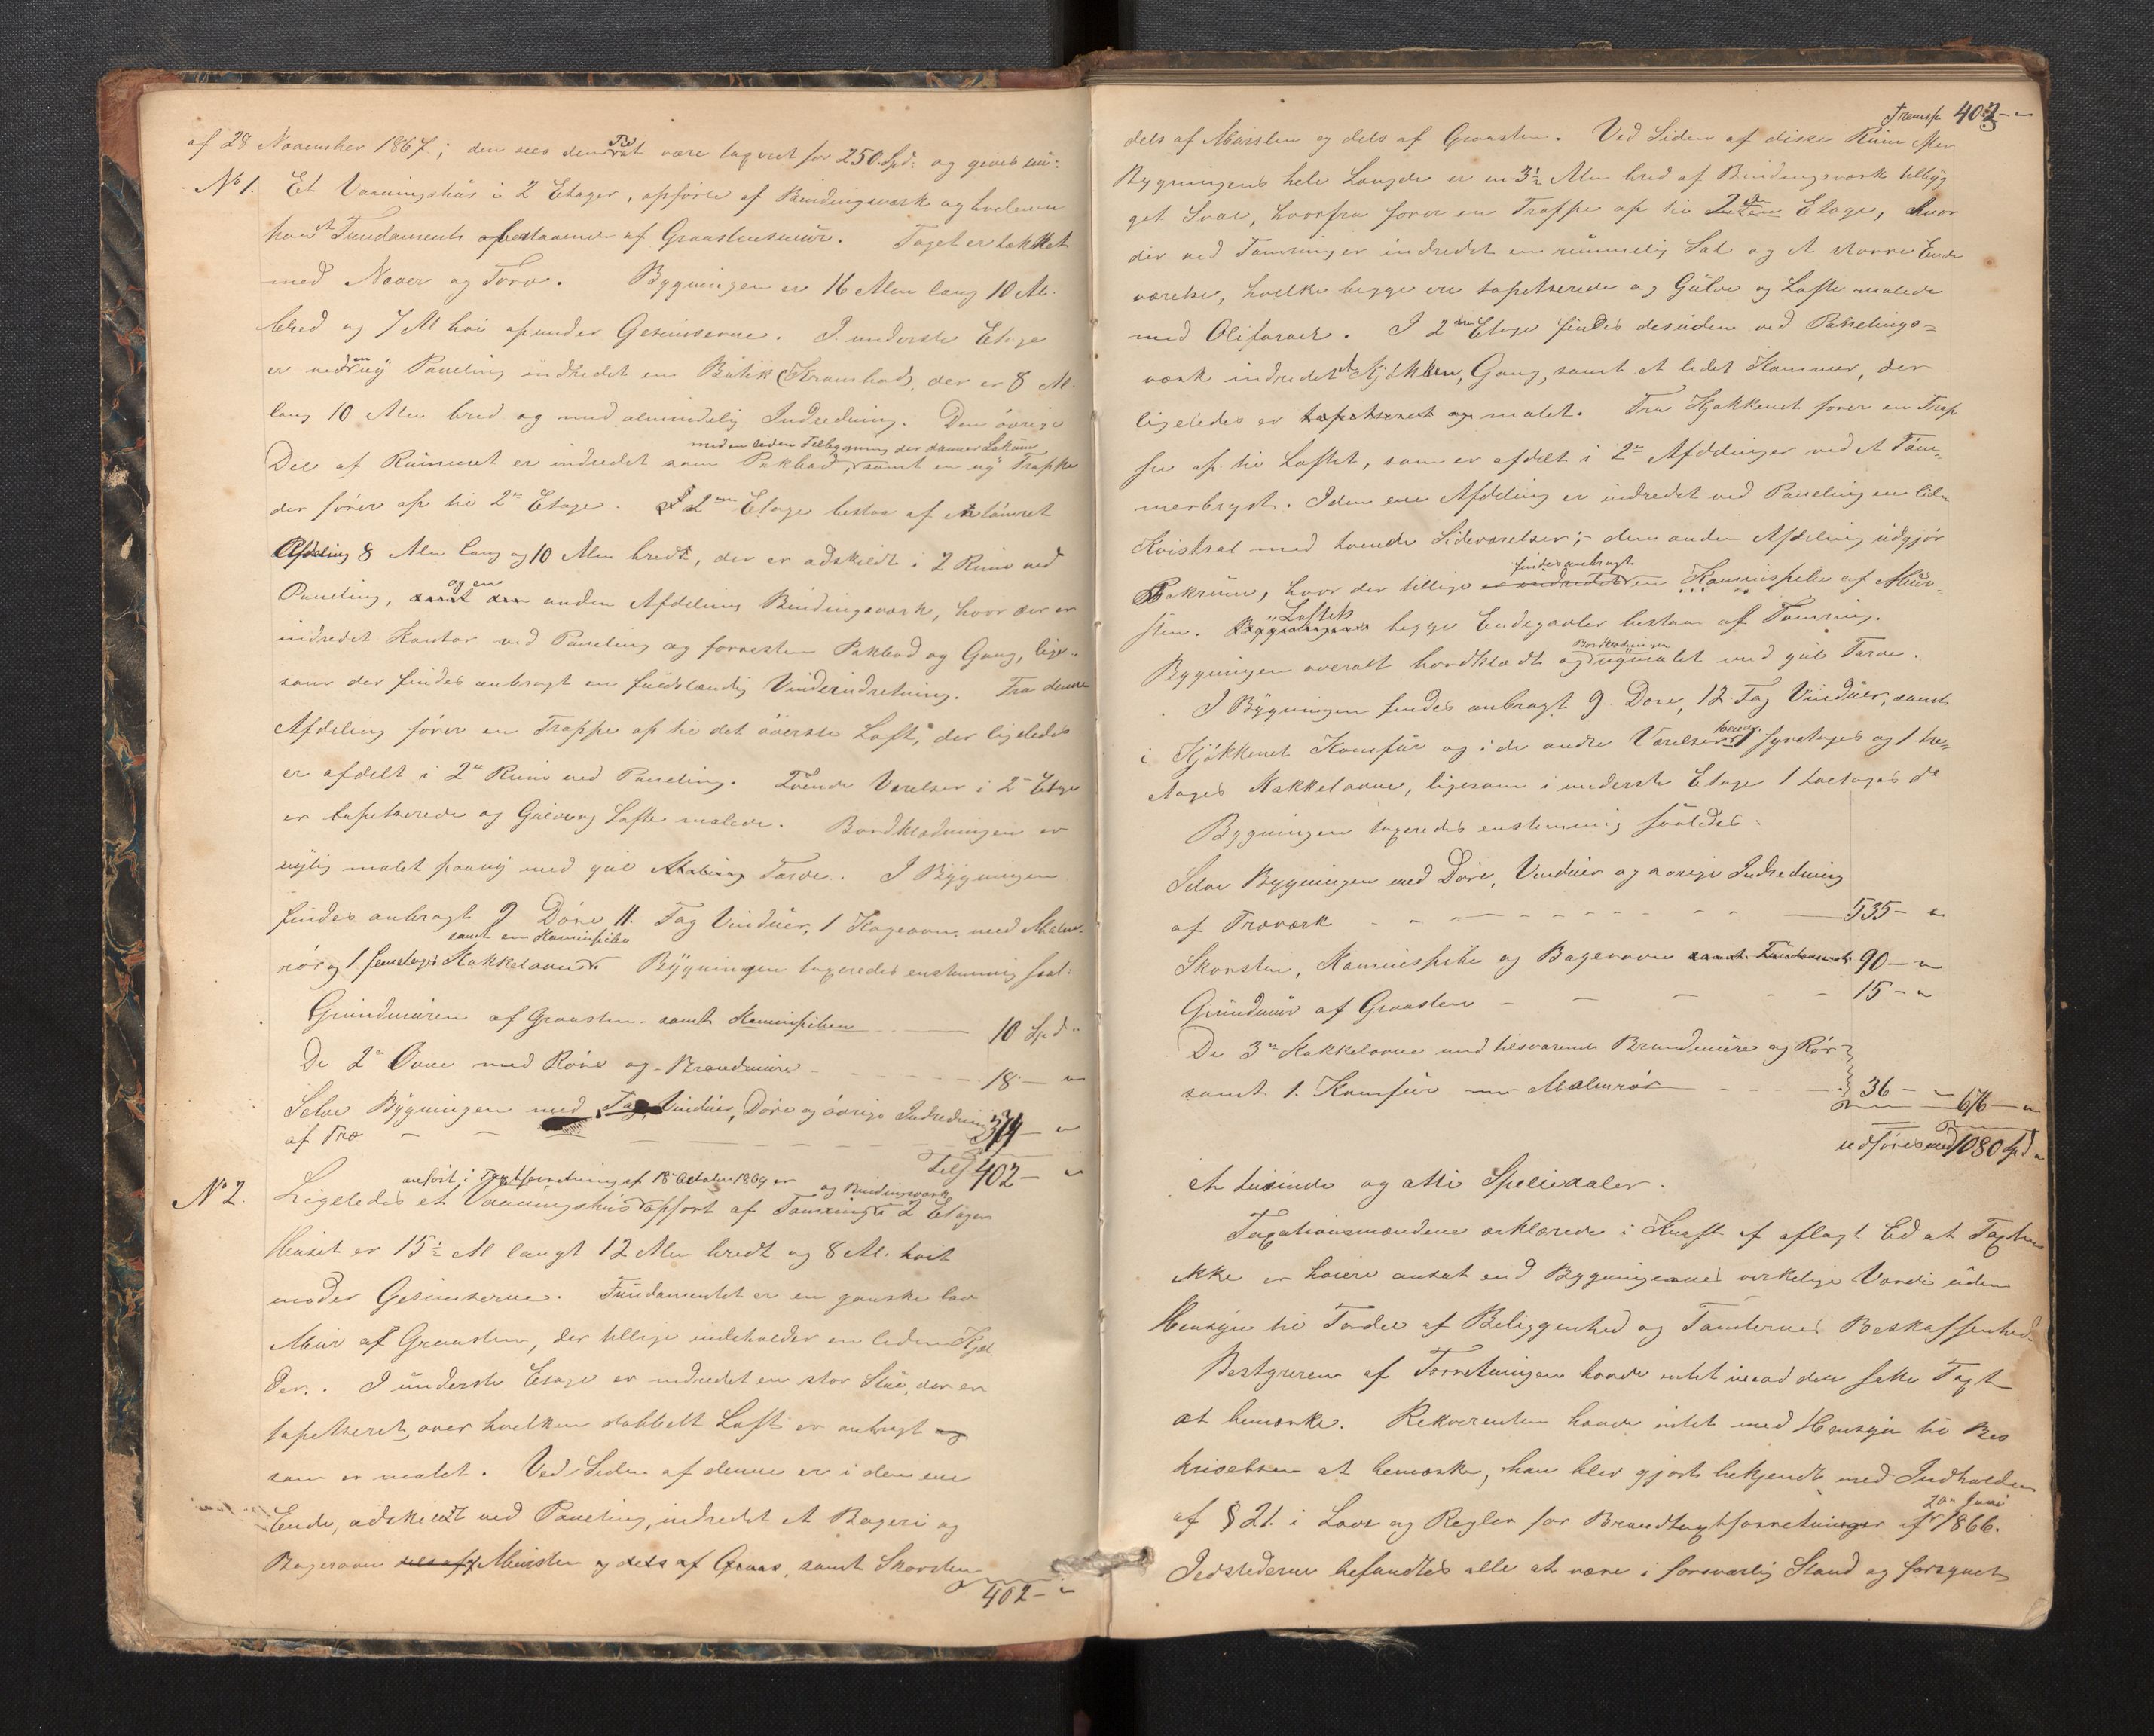 af 28 November 1867; den sees den Tid at være taxeret for 250 Spd: og gives nu:
No 1. Et Vaaningshus i 2 Etager, opførte af Bindingsværk og hvilende
Fundament bestaaende af Graastensmuur. Taget er tækket
med Næver og Torv. Bygningen er 16 Alen lang 10 Al.
bred og 7 Al høi op under Gesimserne. I underste Etage
er ved en ny Paneling indredet en Butik (Krambod), der er 8 Al.
lang 10 Alen bred og med almindelig Indredning. Den øvrige
med en liden Tilbygning der danner Lokum
Deel af Rummet er indredet som Pakbod, samt en ny Trappe
der fører op til 2en Etage. I 2en Etage bestaa af et tømret
Afdeling 8 Alen lang og 10 Alen bredt, der er adskildt i 2 Rum ved
Paneling, samt den og en anden Afdeling Bindingsværk, hvor der er
indredet Kontor ved Paneling og forresten Pakbod og Gang, lige-
som der findes anbragt en fuldstændig Vindeindretning. Fra denne
Afdeling fører en Trappe op til det øverste Loft, der ligeledes
er afdelt i 2de Rum ved Paneling. Tvende Værelser i 2en Etage
er tapetserede og Gulve og Lofte malede. Bordklædningen er
nylig malet paany med gul Farve. I Bygningen
findes anbragt 9 Døre 11 Fag Vinduer, 1 Kogeovn med Malm-
samt en Kaminpibe
rør og 1 femetages Kakkelovn. Bygningen taxeredes enstemmig saal:
Grundmuren af Graasten samt Kaminpiben — 10 Spd "
De 2de Ovne med Røre og Brandmure — 18 — "
Selve Bygningen med Vinduer, Døre og øvrige Indredning
af Træ — 374 — "
Tils 402 — "
anført i Taxtforretning af 18de October 1869 er og Bindingsværk
No 2. Ligeledes et Vaaningshus opført af Tømring i 2 Etager
Huset er 15½ Al langt 12 Alen bredt og 8 Al. høit
under Gesimserne. Fundamentet er en ganske lav
Muur af Graasten, der tillige indeholder en liden Kjel
der. I underste Etage er indredet en stor Stue, der er
tapetseret, over hvilken dobbelt Loft er anbragt og
som er malet. Ved Siden af denne er i den ene
Ende, adskilt ved Paneling, indredet et Bageri og
Bagerovn dels af Muursten og dels af Graas, samt Skorsten
402 — "
Transp. 402 — "
dels af Muursten og dels af Graasten. Ved Siden af disse Rum efter
Bygningens hele Længde er en 3½ Alen bred af Bindingsværk tilbyg
get Sval, hvorfra fører en Trappe op til 2den Etage, hvor
der ved Tømring er indredet en rummelig Sal og et større Ende
værelse, hvilke begge ere tapetserede og Gulve og Lofte malede
med Oliefarver. I 2den Etage findes desuden ved Panelings-
værk indredet et Kjøkken, Gang, samt et lidet Kammer, der
ligeledes er tapetseret og malet. Fra Kjøkkenet fører en Trap
pe op til Loftet, som er afdelt i 2de Afdelinger ved et Tøm-
merbryst. I den ene Afdeling er indredet ved Paneling en liden
Kvistsal med tvende Sideværelser; - den anden Afdeling udgjør
findes anbragt
Pakrum, hvor der tillige er indredet en Kaminpibe af Muur-
sten. Bygningens Loftets begge Endegavler bestaa af Tømring.
Bordklædningen
Bygningen overalt bordklædt og nymalet med gul Farve.
I Bygningen findes anbragt 9 Døre, 12 Fag Vinduer, samt
i Kjøkkenet Komfur og i de andre Værelser 1 fyretages og 1 tre-
etages Kakkelovne, ligesom i underste Etage 1 toetages do
Bygningen taxeredes enstemmig saaledes:
Selve Bygningen med Døre, Vinduer og øvrige Indredning
af Træværk — 535 — "
Skorsten, Kaminpibe og Bagerovn samt Fundament 90 — "
Grundmuur af Graasten — 15 — "
De 3de Kakkelovne med tilsvarende Brandmure og Rør
samt 1 Komfur med Malmrør — 36 — " 676 — "
udføres med 1080 Spd "
et tusinde og otti Speciedaler.
Taxationsmændene erklærede i Kraft af aflagt Ed at Taxten
ikke er høiere ansat end Bygningernes virkelige Værdi uden
Hensyn til Fordel af Beliggenhed og Tomternes Beskaffenhed.
Bestyreren af Forretningen havde intet imod den satte Taxt
at bemærke. Rekvirenten havde intet med Hensyn til Bes
krivelsen at bemærke, han blev gjort bekjendt med Indholden
af § 21 i Love og Regler for Brandtaxtforretninger af 20de Juni 1866.
Ildstederne befandtes alle at være i forsvarlig Stand og forsynet